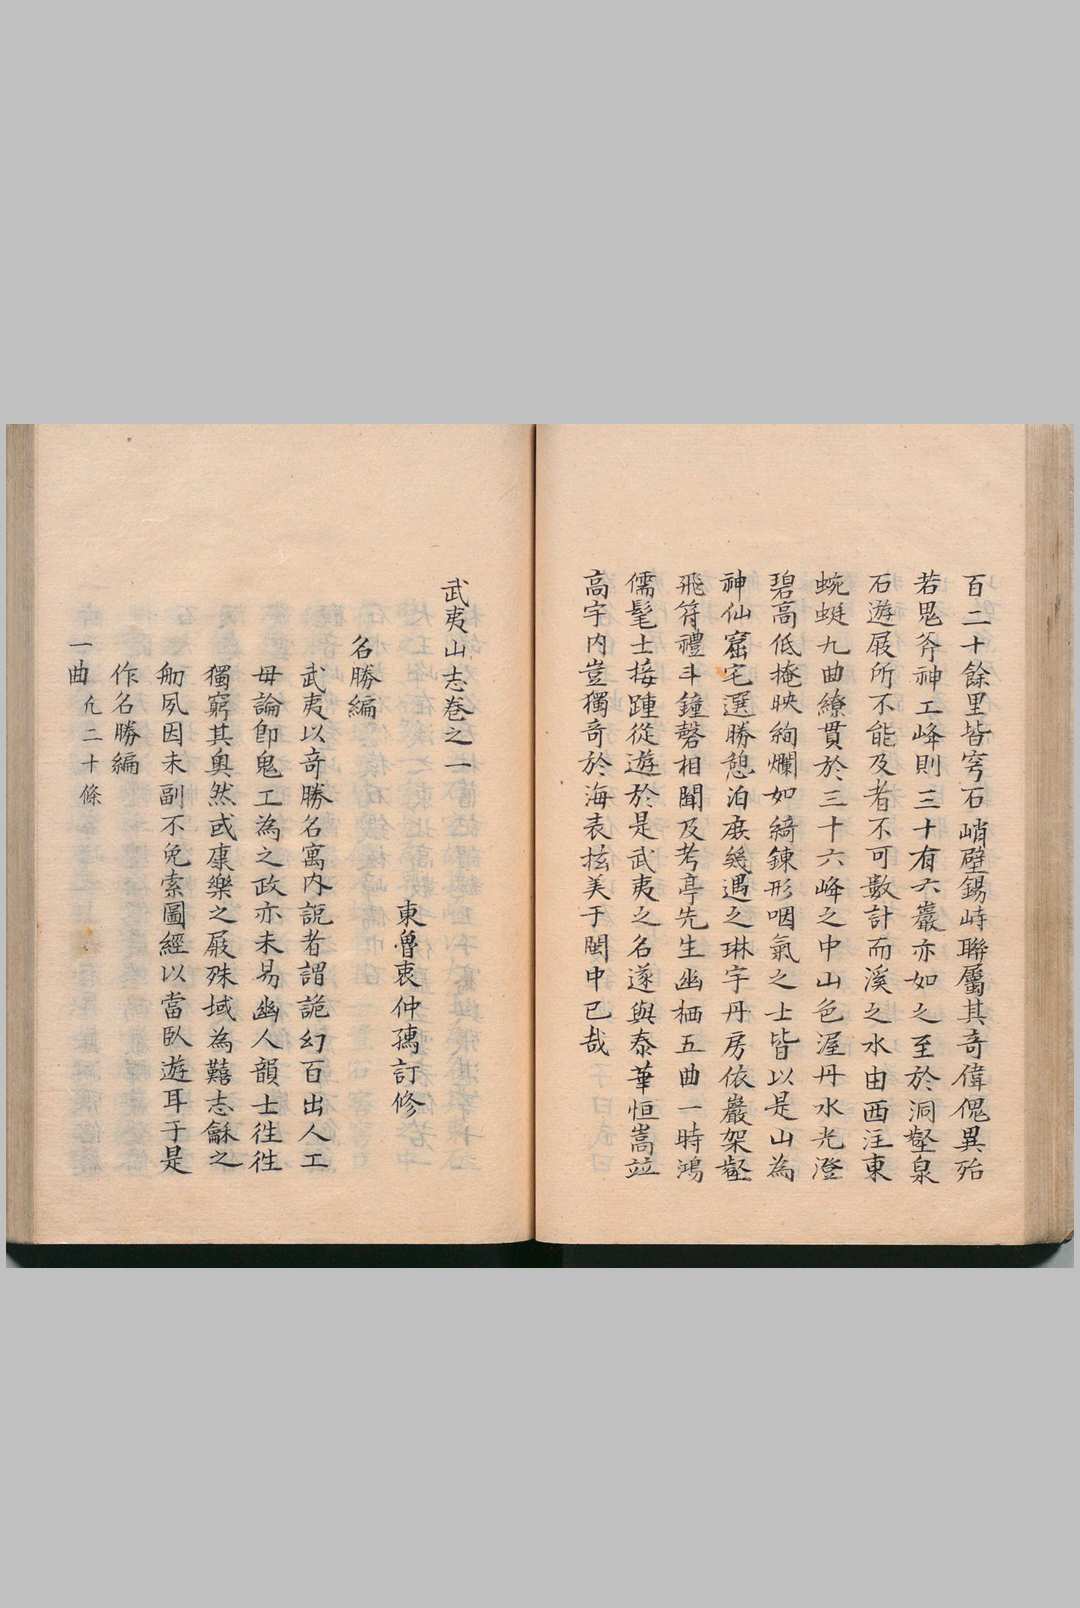 百二十餘里皆穹石峭壁錫峙聯屬其奇偉傀異殆
若鬼斧神工峰則三十有六巖亦如之至於洞壑泉
石遊屐所不能及者不可數計而溪之水由西注東
蜿蜒九曲繚貫於三十六峰之中山色渥丹水光澄
碧高低掩映絢爛如綺鍊形咽氣之士皆以是山為
神仙窟宅選勝憩泊庶幾遇之琳宇丹房依巖架壑
飛符禮斗鐘磬相聞及考亭先生幽栖五曲一時鴻
儒髦士接踵從遊於是武夷之名遂與泰華恒嵩竝
高宇内豈獨奇於海表抎美于閩中已哉
武夷山志卷之一
東魯衷仲孺訂修
名勝編
武夷以奇勝名寓内説者謂詭幻百出人工
毋論卽鬼工為之政亦未易幽人韻士徃徃
獨窮其奧然或康樂之屐殊域為囏志龢之
舠夙因未副不免索圖經以當臥遊耳于是
作名勝編
一曲 凢二十條